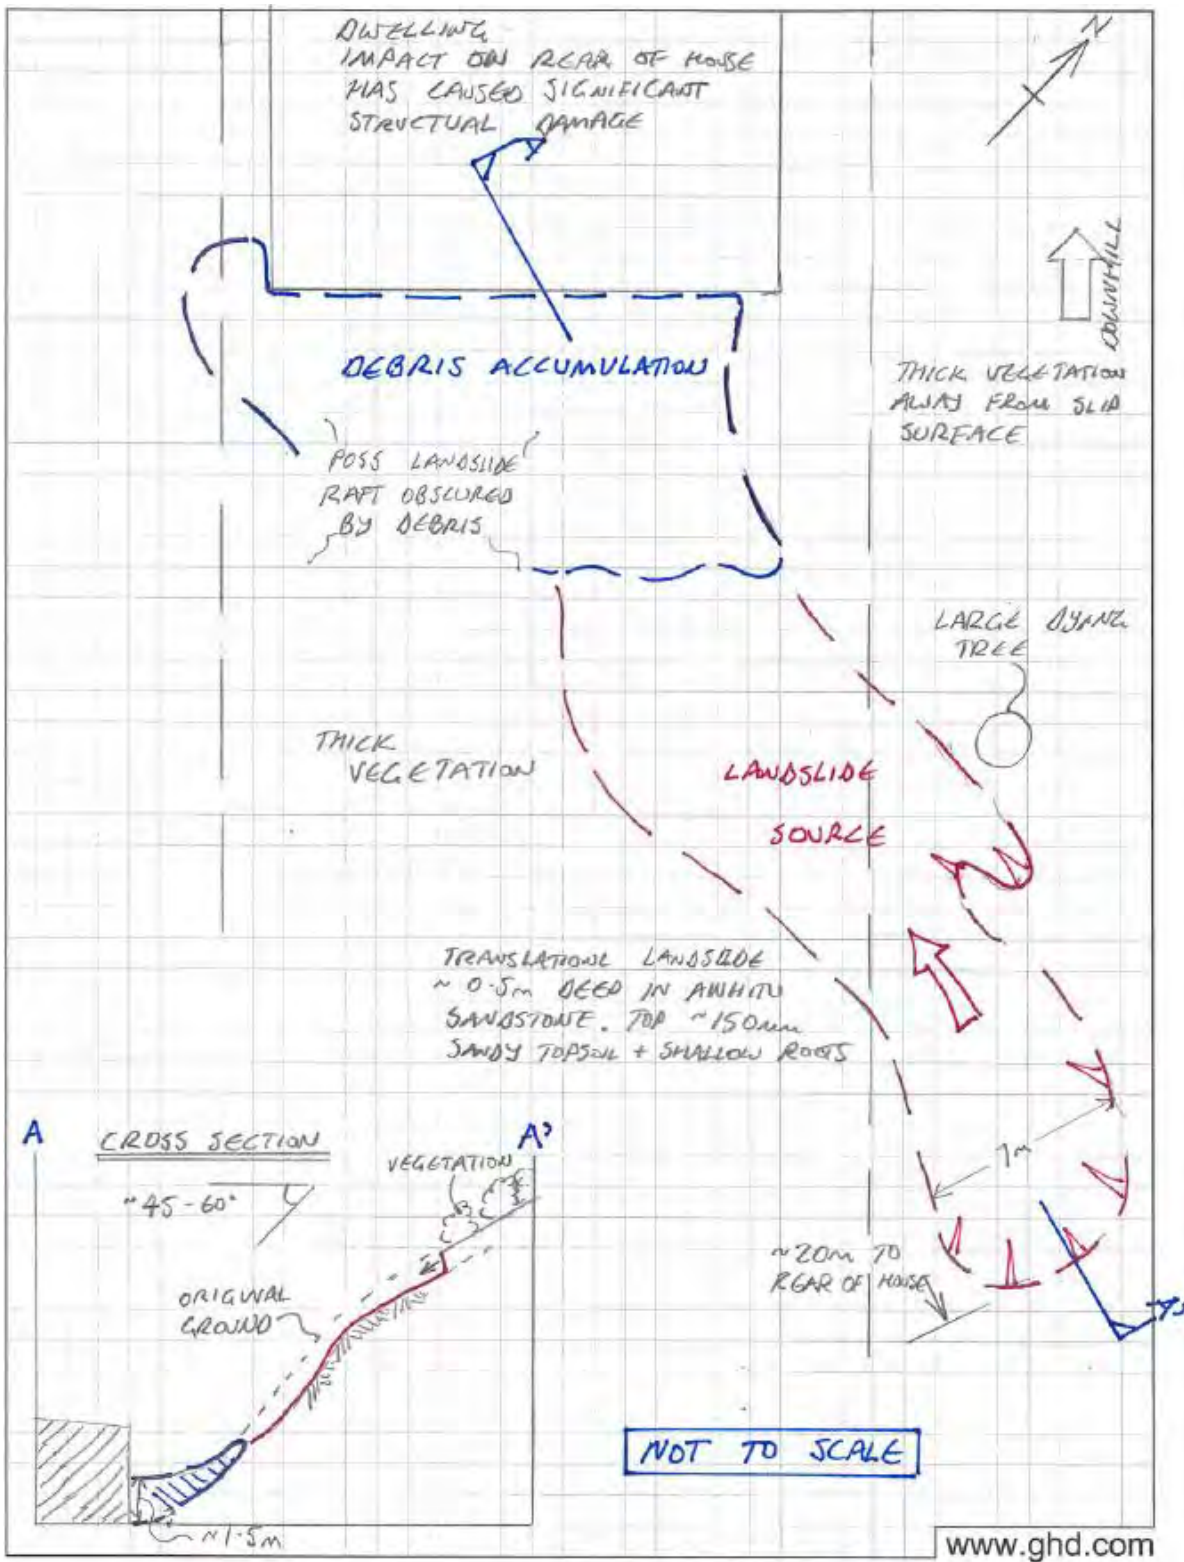 DWELLING
IMPACT ON REAR OF HOUSE
HAS CAUSED SIGNIFICANT
STRUCTUAL DAMAGE
A
N
DOWNHILL
DEBRIS ACCUMULATION
THICK VEGETATION
AWAY FROM SLIP
SURFACE
POSS LANDSLIDE
RAFT OBSCURED
BY DEBRIS
LARGE DYING
TREE
THICK
VEGETATION
LANDSLIDE
SOURCE
TRANSLATIONL LANDSLIDE
~ 0.5m DEEP IN AWHITU
SANDSTONE. TOP ~150mm
SANDY TOPSOIL + SHALLOW ROOTS
7m
~20m TO
REAR OF HOUSE
A'
A
CROSS SECTION
A'
VEGETATION
~45-60°
ORIGINAL
GROUND
~1.5m
NOT TO SCALE
www.ghd.com